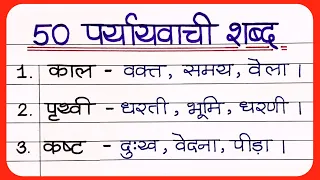 50 पर्यायवाची शब्द
1. काल - वक्त, समय, वेला।
2. पृथ्वी - धरती, भूमि, धरणी।
3. कष्ट - दुःख, वेदना, पीड़ा।